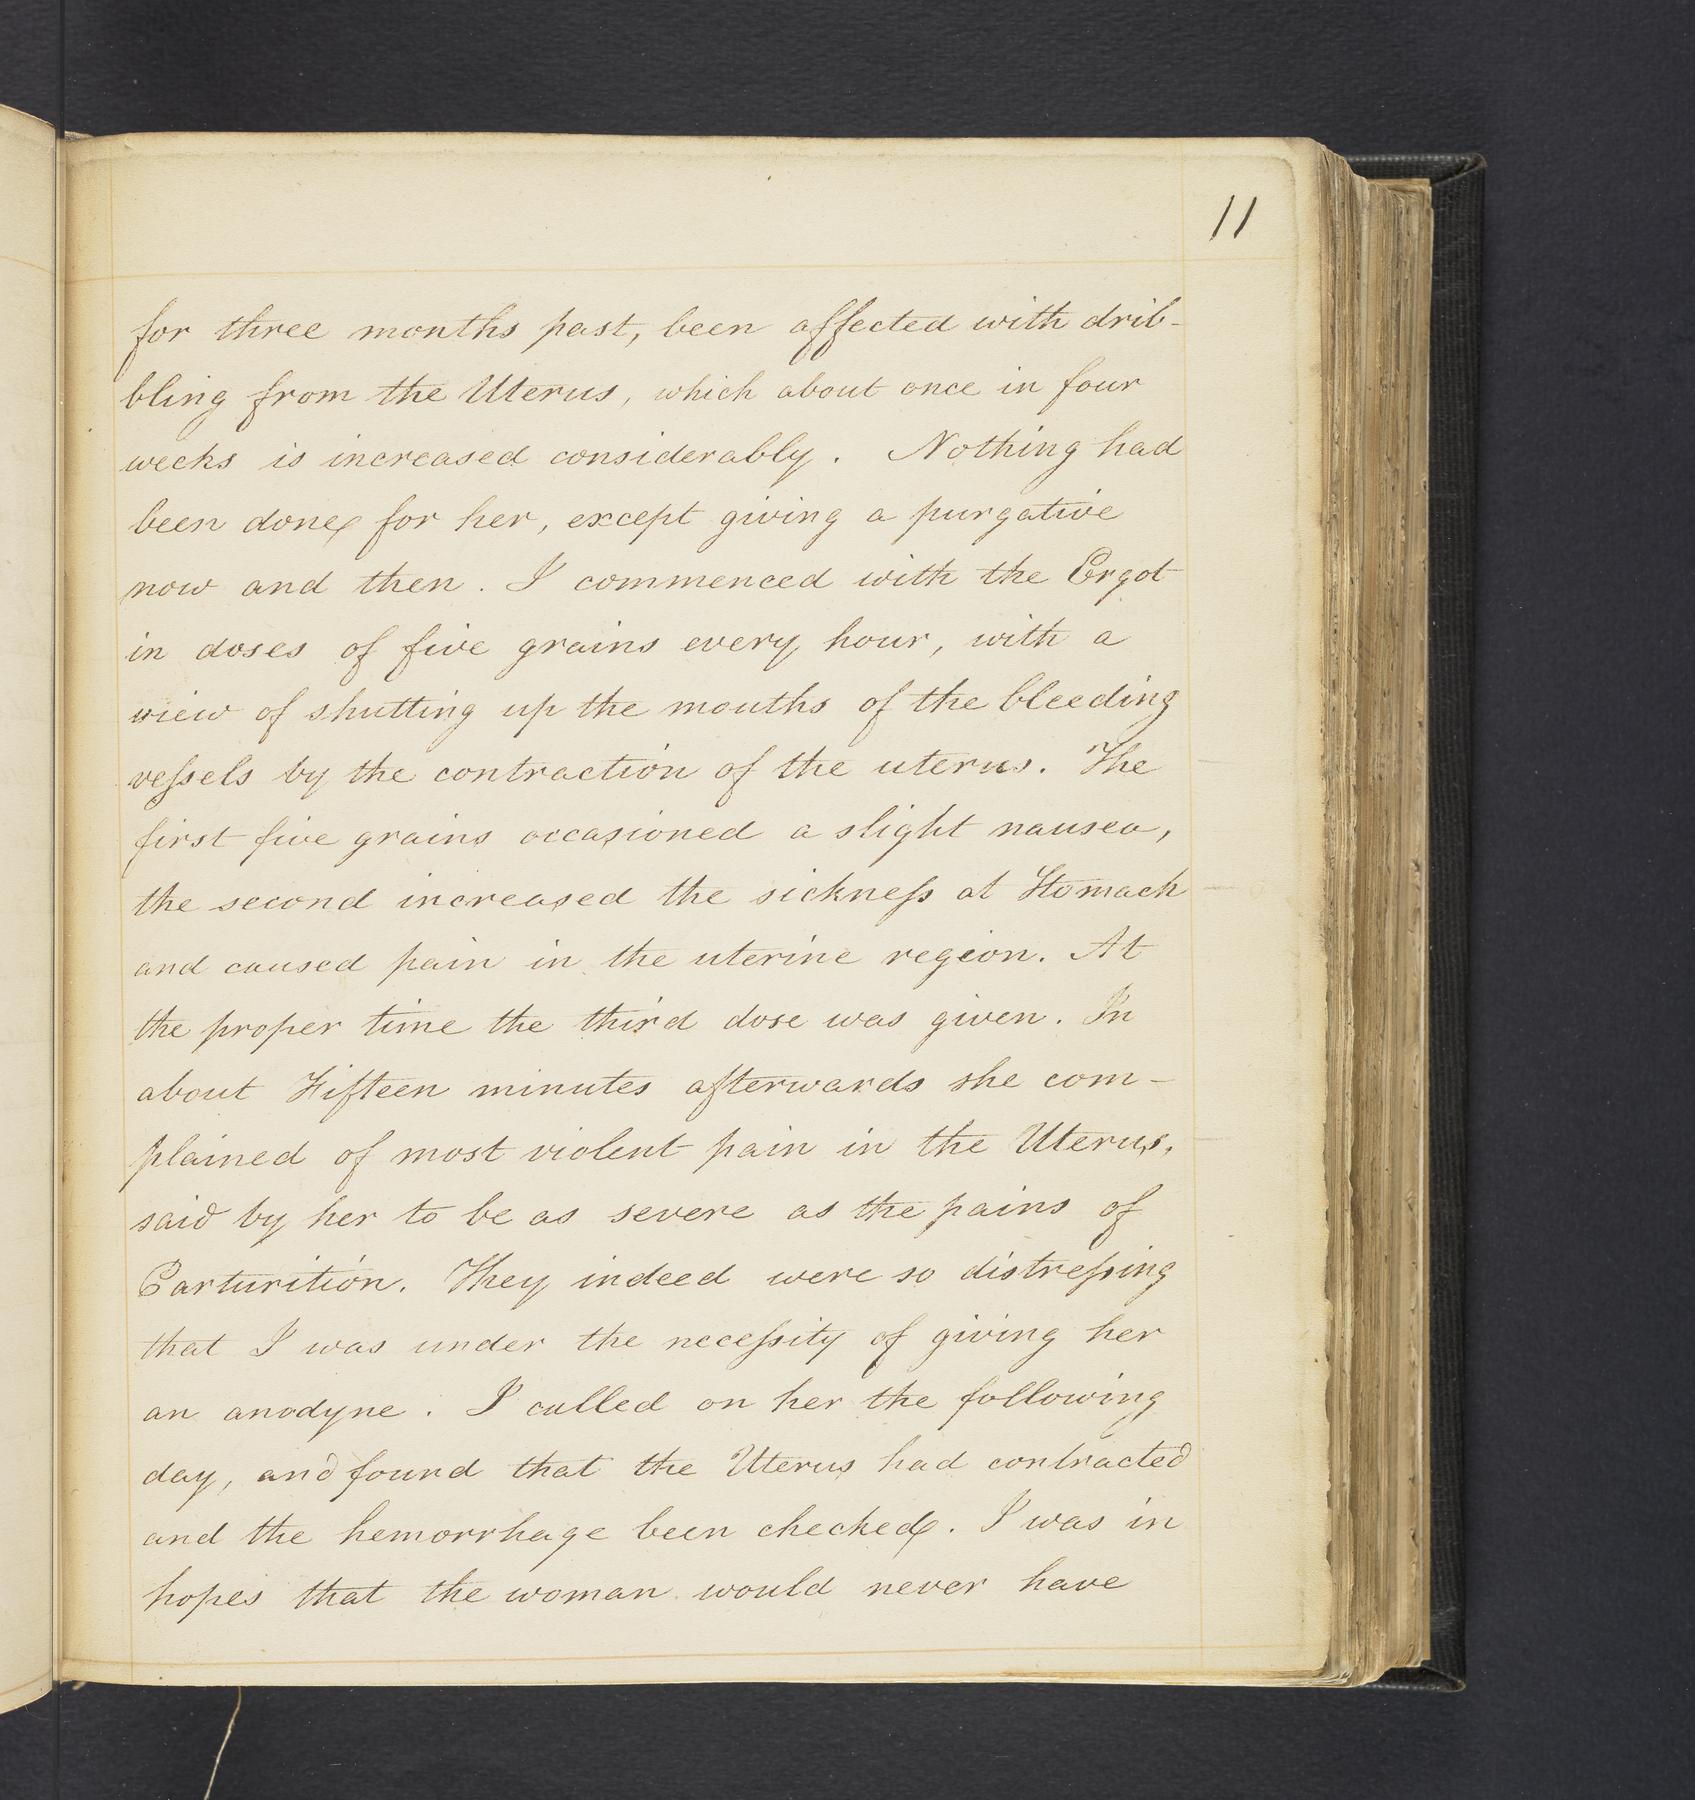 11
for three months past, been affected with drib-
bling from the Uterus, which about once in four
weeks is increased considerably. Nothing had
been done, for her, except giving a purgative
now and then. I commenced with the Ergot
in doses of five grains every hour, with a
view of shutting up the mouths of the bleeding
veſsels by the contraction of the uterus. The
first five grains occasioned a slight nausea,
the second increased the sickneſs at Stomach
and caused pain in the uterine region. At
the proper time the third dose was given. In
about Fifteen minutes afterwards she com-
plained of most violent pain in the Uterus,
said by her to be as severe as the pains of
Parturition. They indeed were so distreſsing
that I was under the neceſsity of giving her
an anodyne. I called on her the following
day, and found that the Uterus had contracted
and the hemorrhage been checked. I was in
hopes that the woman would never have